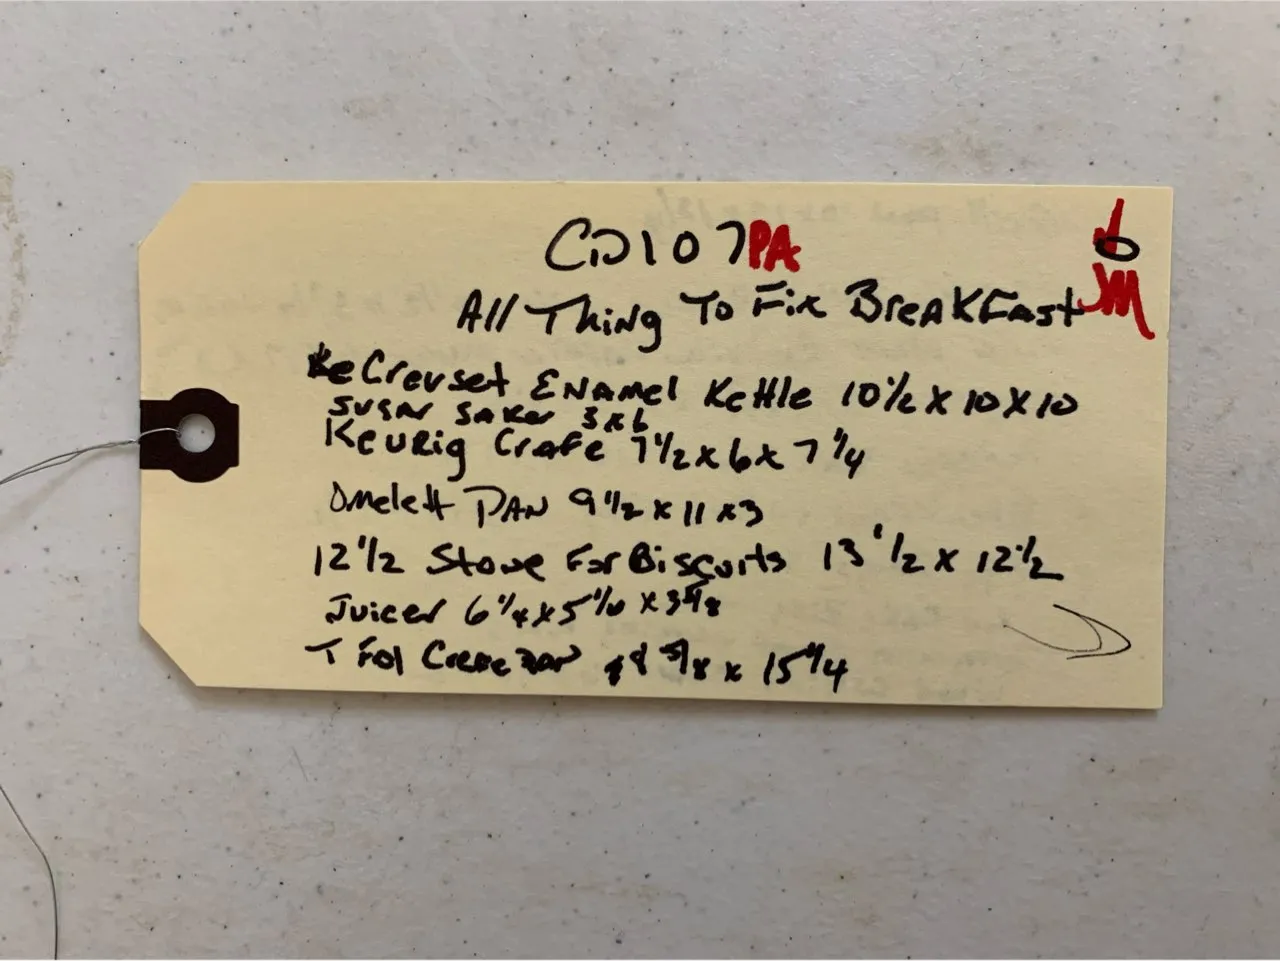 CD107PA
All Thing To Fix BreakFast
Le Creuset Enamel Kettle 10 1/2 X 10 X 10
Sugar Saker 3 x 6
Keurig Crafe 7 1/2 x 6 x 7 1/4
Omelett Pan 9 1/2 x 11 x 3
12 1/2 Stone For Biscuits 13 1/2 x 12 1/2
Juicer 6 1/4 x 5 1/8 x 3 5/8
T Fol Crepe pan 8 5/8 x 15 1/4